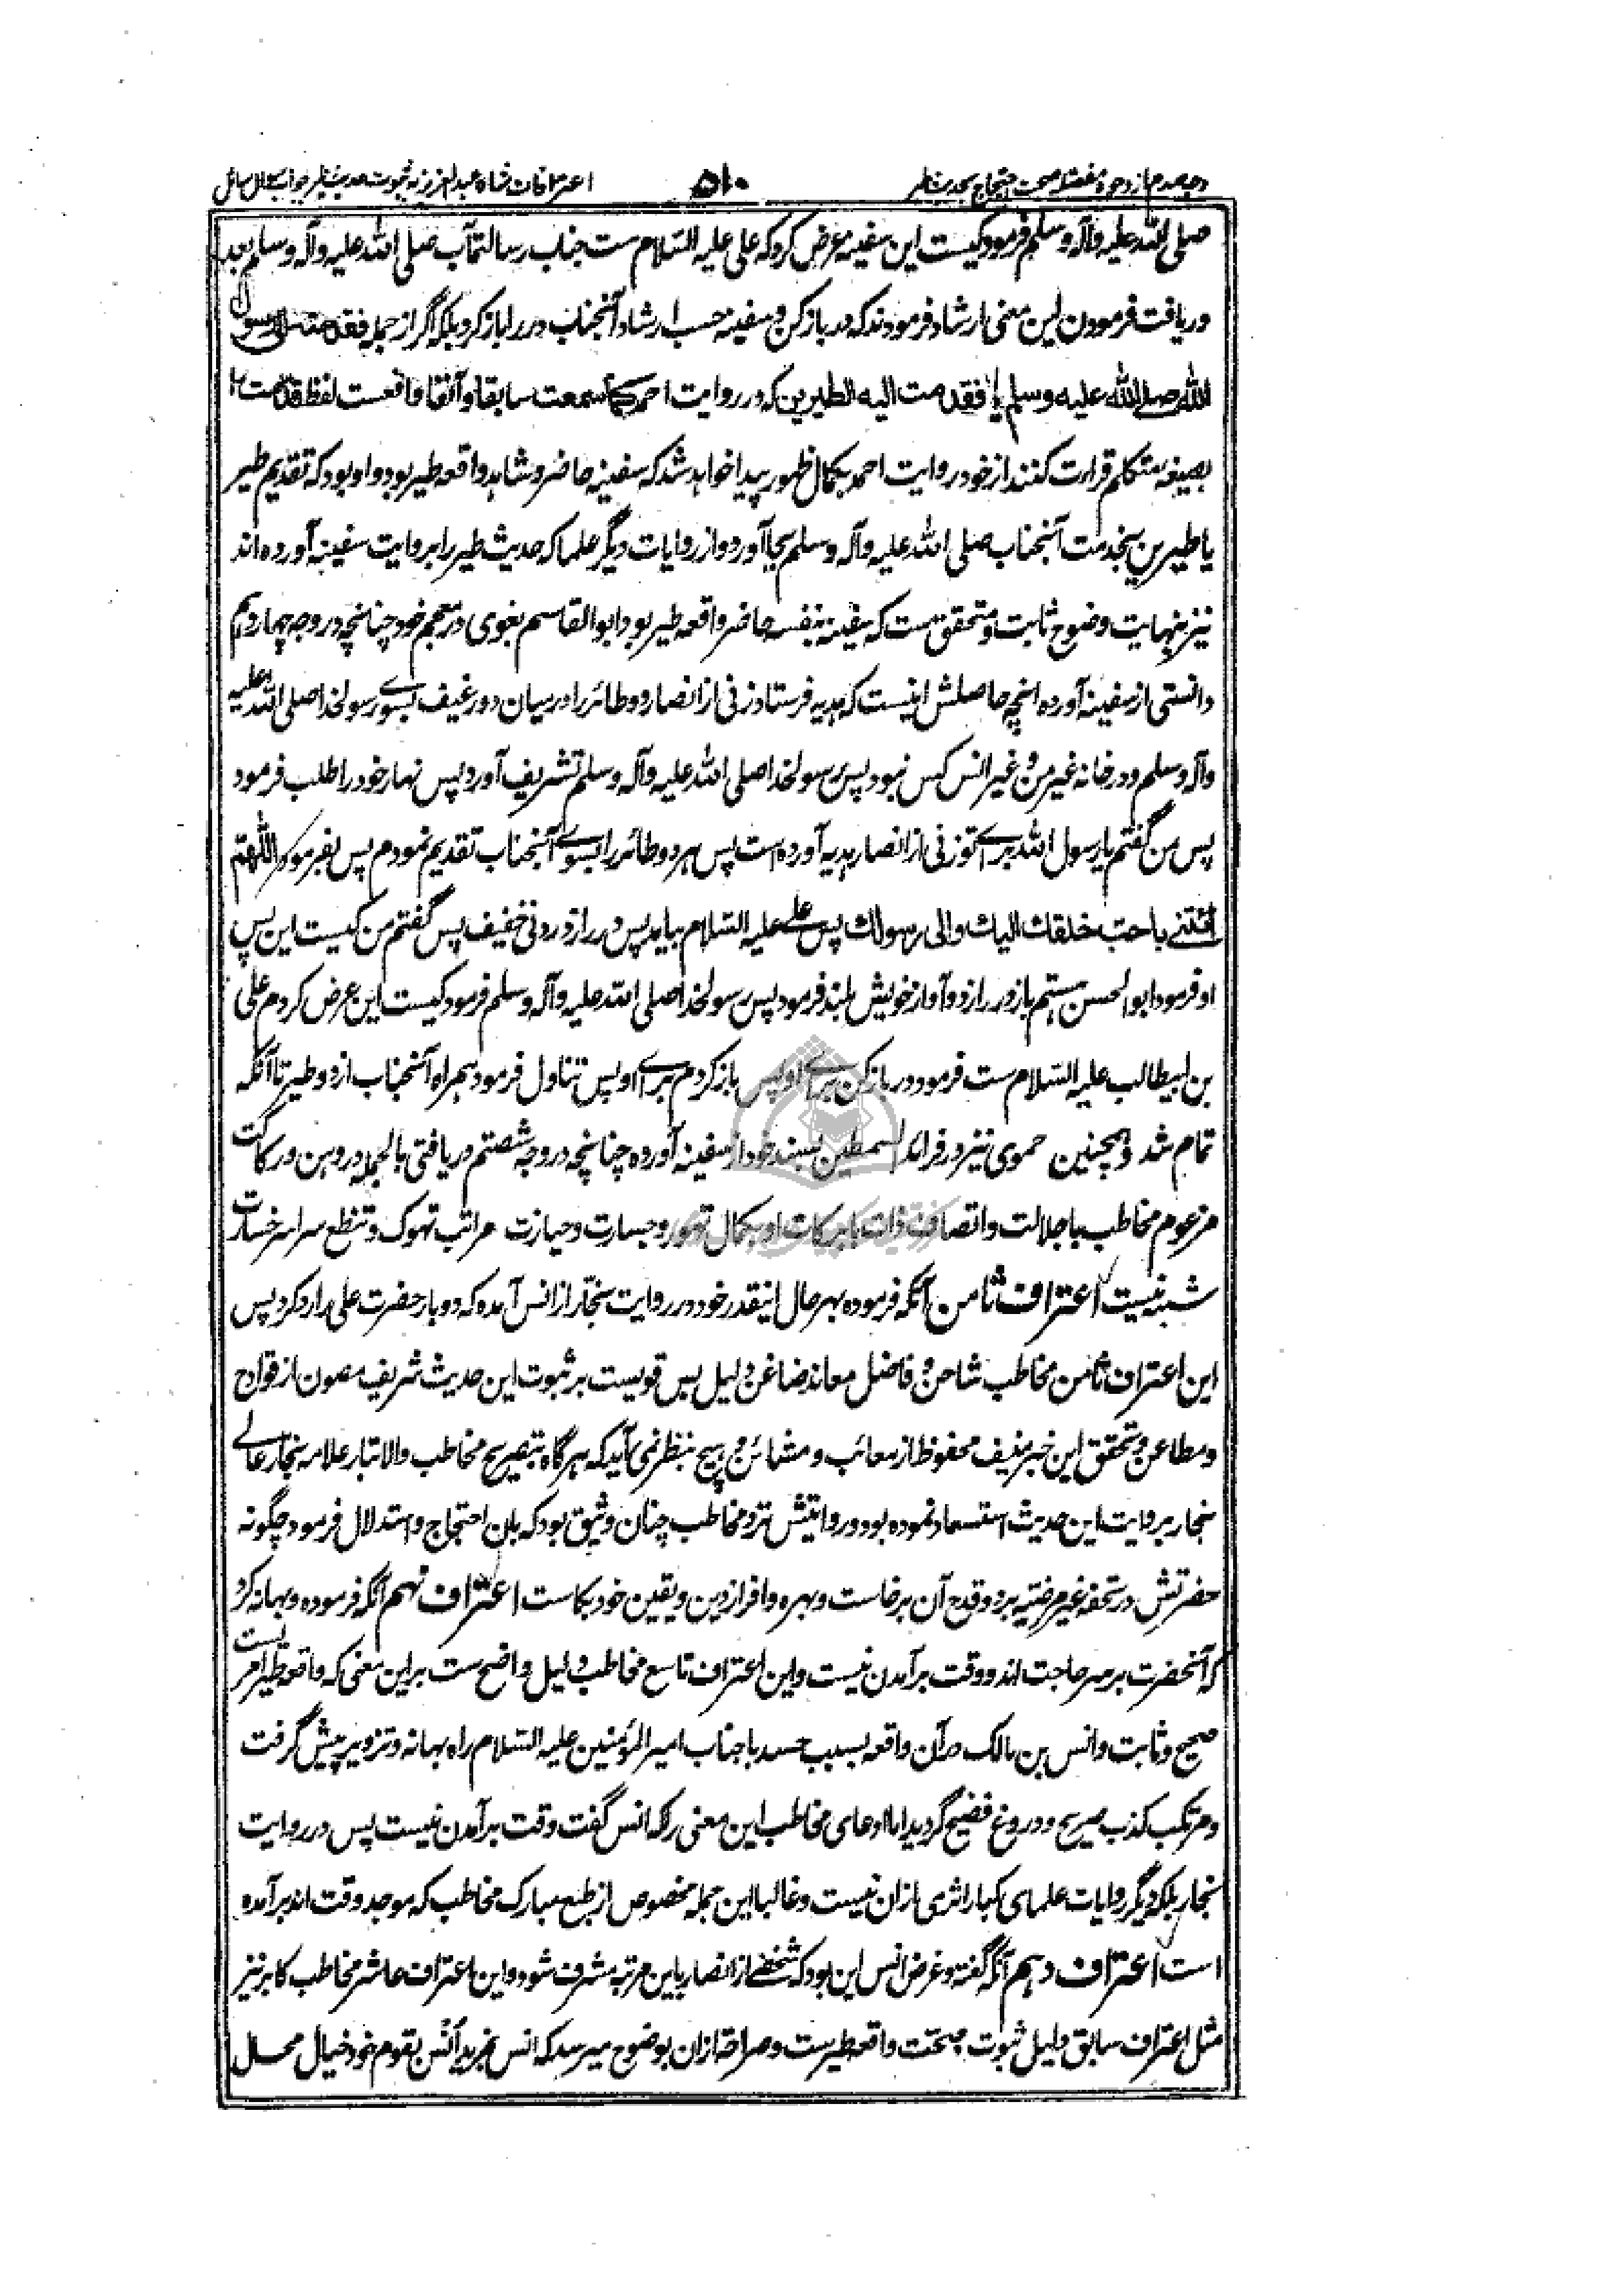 وجه صدم از وجوه مفصله صحت احتجاج بحدیث طیر
۵۱۰
اعترافات شاه عبدالعزیز به ثبوت حدیث طیر جواب سوال سائل
صلی الله علیه وآله وسلم فرمود کیست این سفینه عرض کرد که علی علیه السلام ست جناب رسالتمآب صلی الله علیه وآله وسلم بعد
دریافت فرمودن این معنی ارشاد فرمودند که در باز کن و سفینه حسب ارشاد آنجناب در را باز کرد بلکه اگر از جمله فقدمت الی رسول
الله صلی الله علیه وسلم یا فقدمت الیه الطیرین که در روایت احمد کما سمعت سابقا وآنفا واقعست لفظ قدمت را
بصیغه متکلم قراءت کنند از خود روایت احمد بکمال ظهور پیدا خواهد شد که سفینه حاضر و شاهد واقعه طیر بود و او بود که تقدیم طیر
یا طیرین بخدمت آنجناب صلی الله علیه وآله وسلم بجا آورد و از روایات دیگر علما که حدیث طیر را بروایت سفینه آورده اند
نیز بنهایت وضوح ثابت و متحقق ست که سفینه بنفسه حاضر واقعه طیر بود ابوالقاسم بغوی در معجم خود چنانچه در وجه چهاردهم
دانستی از سفینه آورده انچه حاصلش اینست که هدیه فرستاد زنی از انصار دو طائر را درمیان دو رغیف بسوے رسولخدا صلی الله علیه
وآله وسلم و در خانه غیر من و غیر انس کس نبود پس رسولخدا صلی الله علیه وآله وسلم تشریف آورد پس نهار خود را طلب فرمود
پس من گفتم یا رسول الله براے تو زنی از انصار هدیه آورده است پس هر دو طائر را بسوے آنجناب تقدیم نمودم پس بفرمود اللهم
ائتنے باحب خلقك الیك والی رسولك پس علے علیه السلام بیامد پس در را زد زدنی خفیف پس گفتم من کیست این پس
او فرمود ابوالحسن هستم باز در را زد و آواز خویش بلند فرمود پس رسولخدا صلی الله علیه وآله وسلم فرمود کیست این عرض کردم علی
بن ابیطالب علیه السلام ست فرمود در باز کن براے او پس باز کردم براے او پس تناول فرمود همراه آنجناب از دو طیر تا آنکه
تمام شد و همچنین حموی نیز در فرائد السمطین بسند خود از سفینه آورده چنانچه در وجه شصتم دریافتی بالجمله در وهن و رکاکت
مزعوم مخاطب با جلالت و اتصاف ذات با برکات او بکمال تهور و جسارت و حیازت مراتب تهوک و تنطع سراسر خسارت
شبه نیست اعتراف ثامن آنکه فرموده بهرحال اینقدر خود در روایت نجار از انس آمده که دو بار حضرت علی را رد کرد پس
این اعتراف ثامن مخاطب شاحن و فاضل معاند ضاغن دلیل بس قویست بر ثبوت این حدیث شریف مصون از قوادح
و مطاعن و تحقق این خبر منیف محفوظ از معائب و مشائن و هیچ بنظر نمی آید که هرگاه بتصریح مخاطب والا تبار علامه نجار عالے
نجار بروایت این حدیث استسعاد نموده بود و روایتش نزد مخاطب چنان وثیق بود که بان احتجاج و استدلال فرمود چگونه
حضرتش در تحفه غیر مرضیه برد و قدح آن برخاست و بهره وافر از دین و یقین خود بکاست اعتراف نهم آنکه فرموده و بهانه کرد
که آنحضرت بر سر حاجت اند و وقت برآمدن نیست و این اعتراف تاسع مخاطب دلیل واضح ست براین معنی که واقعه طیر امریست
صحیح و ثابت و انس بن مالک در آن واقعه بسبب حسد با جناب امیرالمؤمنین علیه السلام راه بهانه و تزویر پیش گرفت
و مرتکب کذب صریح و دروغ فضیح گردید اما ادعای مخاطب این معنی را که انس گفت وقت برآمدن نیست پس در روایت
نجار بلکه دیگر روایات علمای کبار اثری ازان نیست و غالبا این جمله مخصوص از طبع مبارک مخاطب که موجد وقت اند برآمده
است اعتراف دهم آنکه گفته و غرض انس این بود که شخصے از انصار باین مرتبه مشرف شود و این اعتراف عاشر مخاطب کابر نیز
مثل اعتراف سابق دلیل ثبوت و صحت واقعه طیرست و صراحة ازان بوضوح میرسد که انس بقوم خود خیال محال